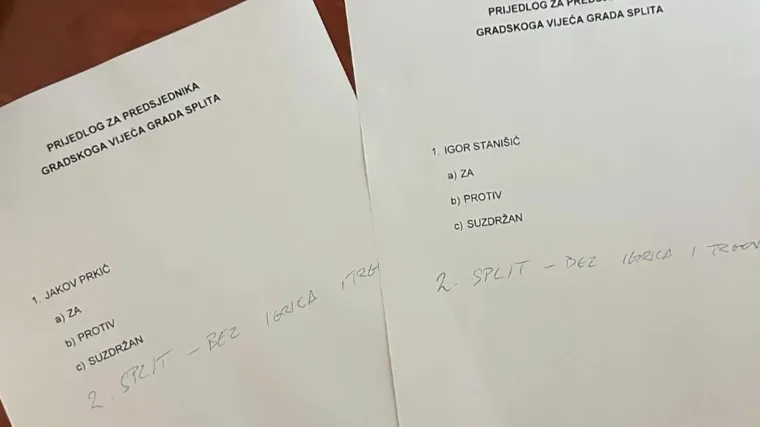 PRIJEDLOG ZA PREDSJEDNIKA
GRADSKOGA VIJEĆA GRADA SPLITA
1. JAKOV PRKIĆ
a) ZA
b) PROTIV
c) SUZDRŽAN
2. SPLIT – BEZ IGRICA I TRG
PRIJEDLOG ZA
GRADSKOGA VIJEĆA GRADA SPLITA
1. IGOR STANIŠIĆ
a) ZA
b) PROTIV
c) SUZDRŽAN
2. SPLIT – BEZ IGRICA I TRGOV